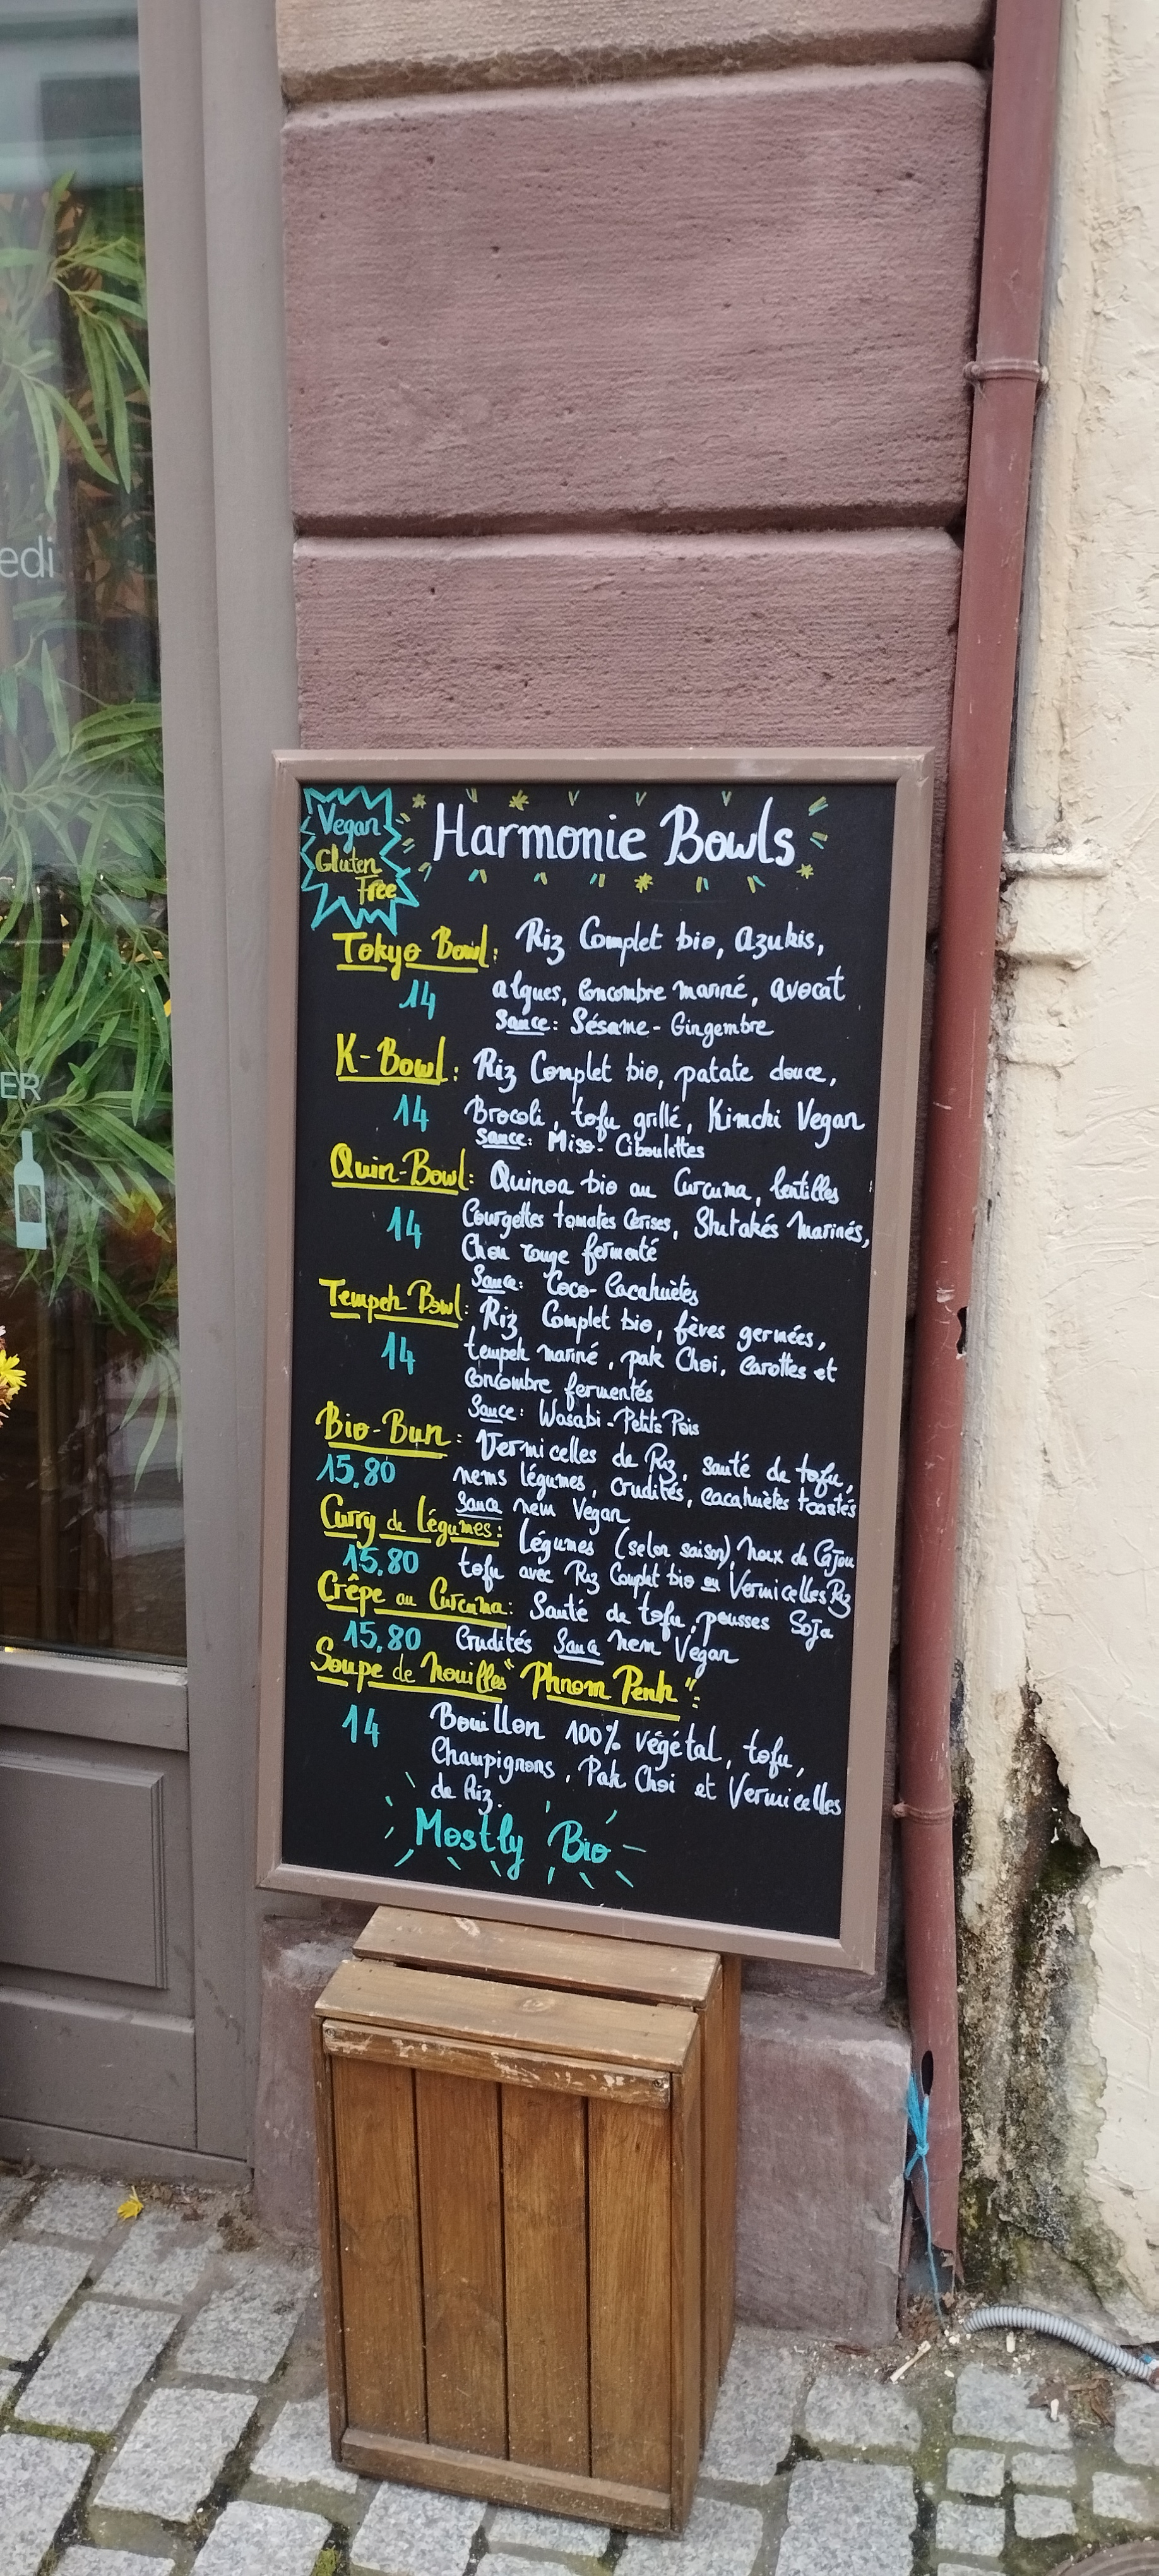 edi
ER
Vegan
Gluten
Free
Harmonie Bowls
Tokyo Bowl: Riz Complet bio, azukis,
14 algues, concombre mariné, avocat
Sauce: Sésame - Gingembre
K-Bowl: Riz Complet bio, patate douce,
14 Brocoli, tofu grillé, Kimchi Vegan
Sauce: Miso - Ciboulettes
Quin-Bowl: Quinoa bio au Curcuma, lentilles
14 Courgettes tomates Cerises, Shitakés Marinés,
Chou rouge fermenté
Sauce: Coco-Cacahuètes
Tempeh Bowl: Riz Complet bio, fèves germées,
14 tempeh mariné, pak Choi, Carottes et
Concombre fermentés
Sauce: Wasabi - Petits Pois
Bio-Bun: Vermicelles de Riz, sauté de tofu,
15,80 nems légumes, crudités, cacahuètes toastés
Sauce nem Vegan
Curry de Légumes: Légumes (selon saison), noix de Cajou
15,80 tofu avec Riz Complet bio ou Vermicelles Riz
Crêpe au Curcuma: Sauté de tofu, pousses Soja
15,80 Crudités Sauce nem Vegan
Soupe de Nouilles "Phnom Penh":
14 Bouillon 100% végétal, tofu,
Champignons, Pak Choi et Vermicelles
de Riz.
Mostly Bio